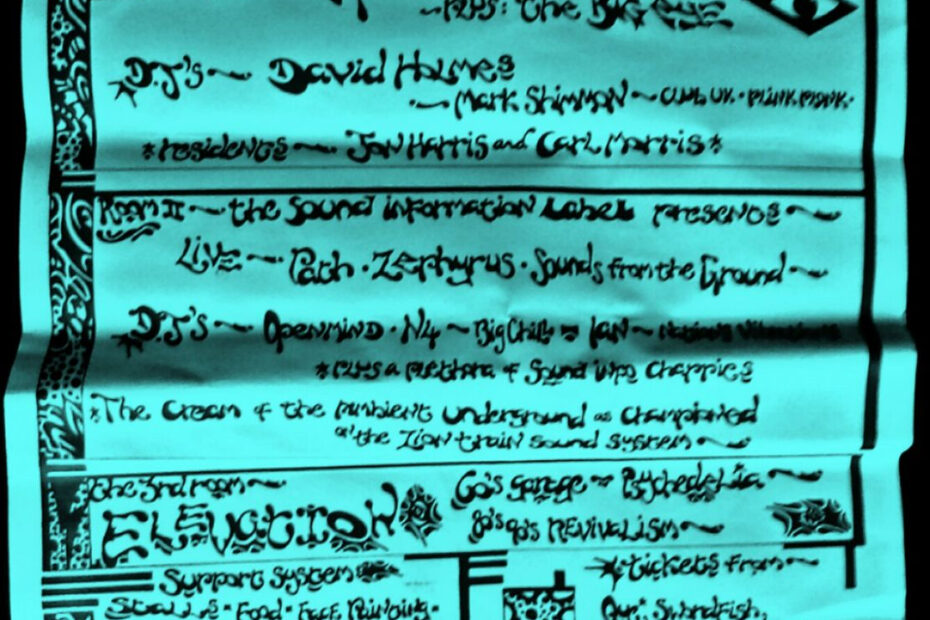 ~ plus: the Big eye
D.J's ~ David Holmes
~ Mark Shimmon ~ Club UK · Plink Plonk ·
*residents ~ Jon Harris and Carl Morris*
Room II ~ the Sound information Label presents ~
Live ~ Path · Zephyrus · Sounds from the Ground ~
D.J's ~ Openmind · N4 ~ Big Chill = Ian ~
*plus a plethora of Sound info chappies
*The Cream of the Ambient Underground as championed
on the Zion train sound system ~
the 3rd room ~
ELEVATION
60's garage ~ Psychedelia ~
80's 90's REVIVALISM ~
Support System
Stalls · Food · Face Painting ·
*tickets from ~
Swordfish,